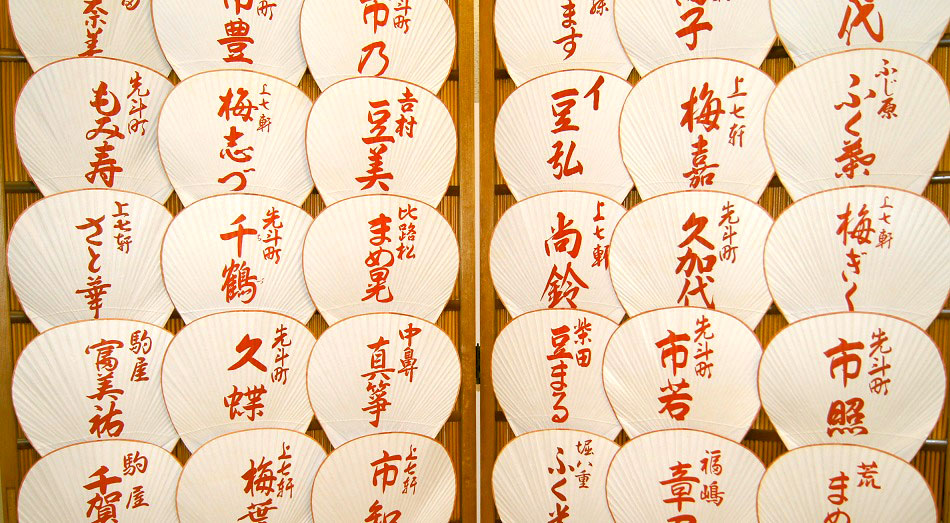 市豊
先斗町
市乃
ます
代
先斗町
もみ寿
上七軒
梅志づ
吉村
豆美
イ
豆弘
上七軒
梅嘉
ふじ原
ふく葵
上七軒
さと華
先斗町
千鶴
比路松
まめ晃
上七軒
尚鈴
先斗町
久加代
上七軒
梅ぎく
駒屋
富美祐
先斗町
久蝶
中鼻
真箏
柴田
豆まる
先斗町
市若
先斗町
市照
駒屋
千賀
上七軒
梅葉
上七軒
市知
堀八重
ふく
福嶋
章
荒
まめ